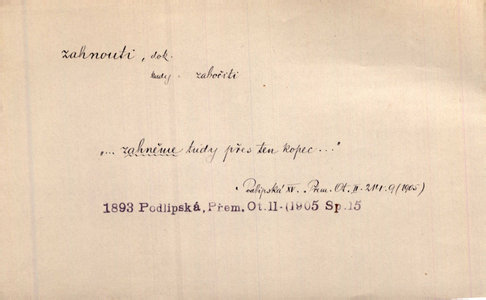 zahnouti, dok.
kudy. zabořiti
"... zahněme tudy přes ten kopec ..."
Podlipská XV. Přem. Ot. II. 211. 9 (1905)
1893 Podlipská, Přem. Ot. II - (1905 Sp. 15